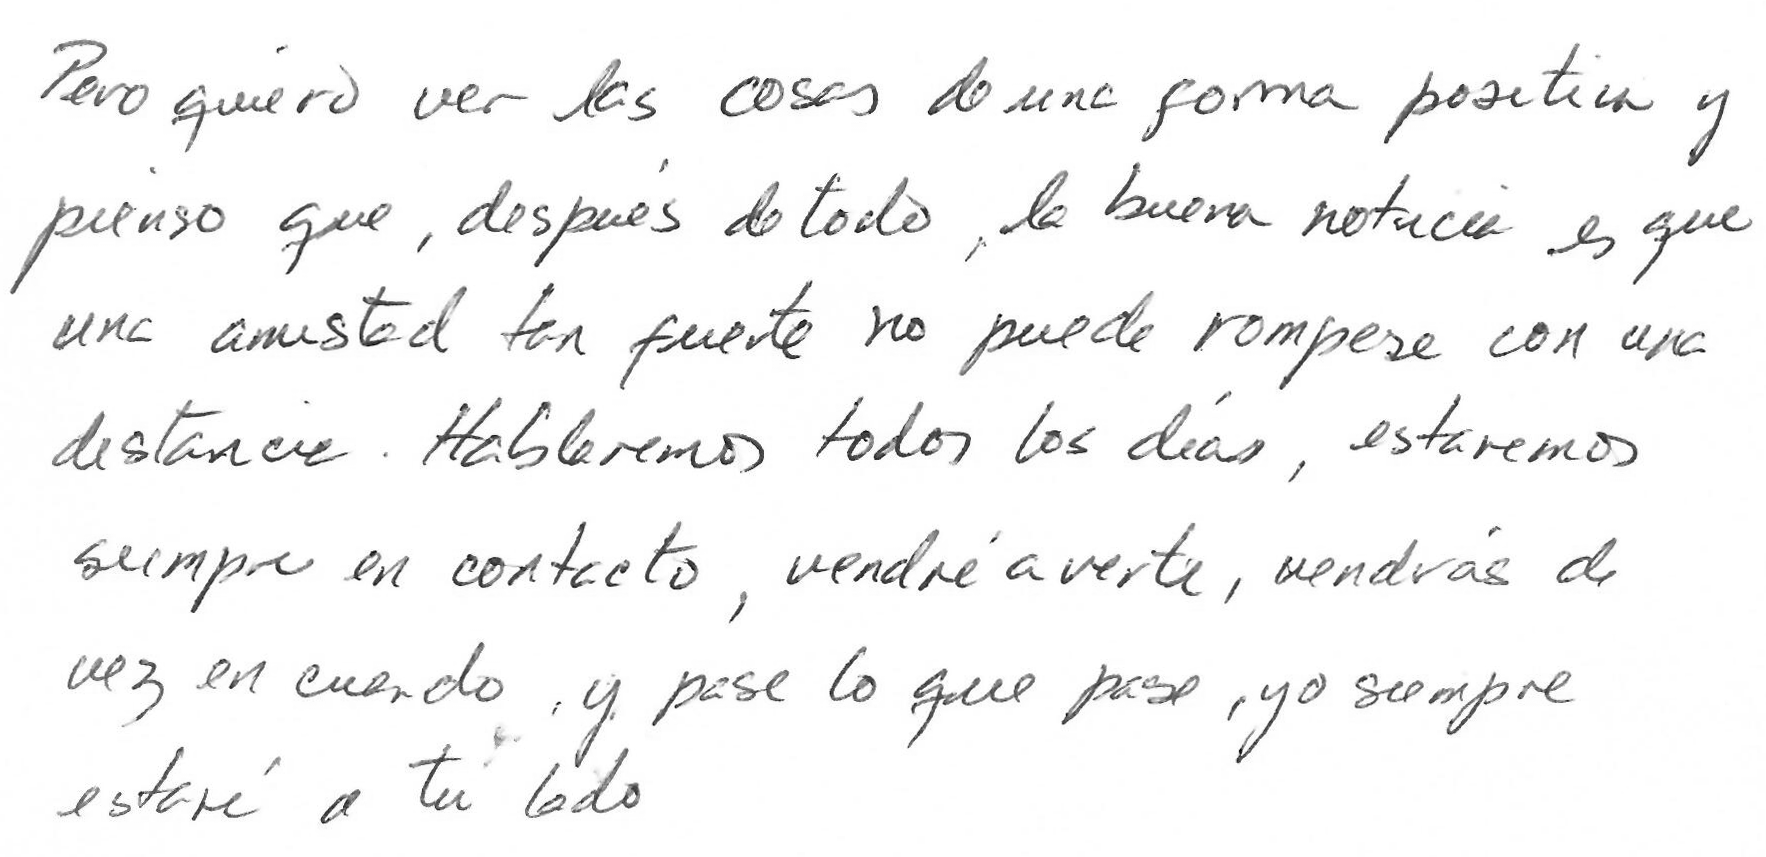 Pero quiero ver las cosas de una forma positiva y
pienso que, después de todo, la buena noticia es que
una amistad tan fuerte no puede romperse con una
distancia. Hablaremos todos los días, estaremos
siempre en contacto, vendré a verte, vendrás de
vez en cuando, y pase lo que pase, yo siempre
estaré a tu lado